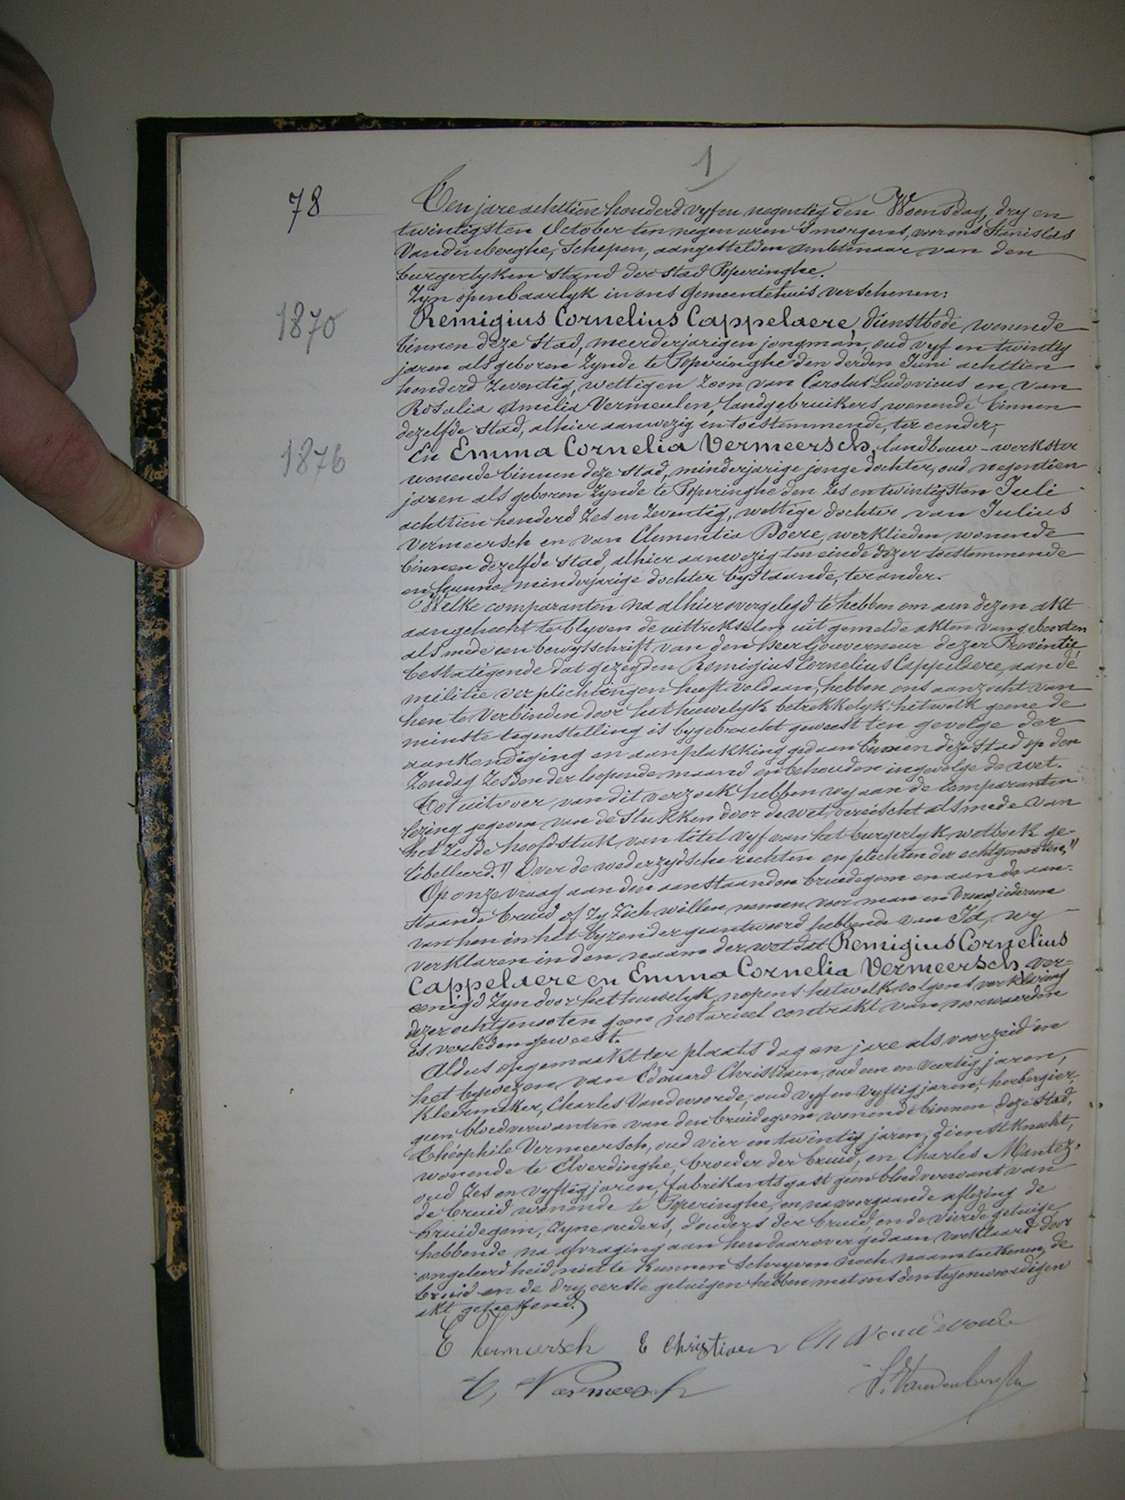 1
78
Ten jare achttien honderd vyf en negentig den Woensdag, dry en
twintigsten October ten negen uren 's morgens, voor ons Stanislas
Vandenberghe, Schepen, aangestelden ambtenaar van den
burgerlyken stand der stad Poperinghe.
Zyn openbaarlyk in ons gemeentehuis verschenen:
1870
Remigius Cornelius Cappelaere, dienstbode wonende
binnen deze stad, meerderjarigen jongman, oud vyf en twintig
jaren als geboren zynde te Poperinghe den derden Juni achttien
honderd zeventig, wettigen zoon van Carolus Ludovicus en van
Rosalia Amelia Vermeulen, landgebruikers, wonende binnen
dezelfde stad, alhier aanwezig en toestemmende, ter eender;
1876
En Emma Cornelia Vermeersch, landbouw-werkster
wonende binnen deze stad, minderjarige jonge dochter, oud negentien
jaren als geboren zynde te Poperinghe den zes en twintigsten Juli
achttien honderd zes en zeventig, wettige dochter van Julius
Vermeersch en van Clementia Boere, werklieden wonende
binnen dezelfde stad, alhier aanwezig ten einde dezer toestemmende
en hunne minderjarige dochter bystaande, ter ander.
Welke comparanten na alhier overgelegd te hebben om aan dezen akt
aangehecht te blyven de uittrekselen uit gemelde akten van geboorten
als mede een bewysschrift van den heer Gouverneur dezer Provintie
bestatigende dat gezegden Remigius Cornelius Cappelaere, aan de
militie verplichtingen heeft voldaan, hebben ons aanzocht van
hen te verbinden door het huwelyk betrekkelyk hetwelk geene de
minste tegenstelling is bygebracht geweest ten gevolge der
aankondiging en aanplakking gedaan binnen deze stad op den
Zondag zesden der loopende maand en behouden ingevolge de wet.
Tot uitvoer van dit verzoek hebben wy aan de comparanten
lezing gegeven van de stukken door de wet vereischt als mede van
het zesde hoofdstuk van titel vyf van het burgerlyk wetboek ge-
libelleerd. "Over de wederzydsche rechten en plichten der echtgenooten."
Op onze vraag aan den aanstaanden bruidegom en aan de aan-
staande bruid of zy zich willen nemen voor man en vrouw, iedereen
van hen in het byzonder geantwoord hebbende van Ja, wy
verklaren in den naam der wet dat Remigius Cornelius
Cappelaere en Emma Cornelia Vermeersch ver-
eenigd zyn door het huwelyk, nopens hetwelk volgens verklaring
dezer echtgenooten geen notarieel contrakt van voorwaarden
is verleden geweest.
Aldus opgemaakt ter plaats dag en jare als voorzeid in
het bywezen van Edouard Christiaen, oud een en veertig jaren,
kleermaker, Charles Vandewoorde, oud vyf en vyftig jaren, herbergier,
geen bloedverwanten van den bruidegom wonende binnen deze stad,
Théophile Vermeersch, oud vier en twintig jaren, dienstknecht,
wonende te Elverdinghe, broeder der bruid, en Charles Mantez,
oud zes en vyftig jaren, fabrikantsgast geen bloedverwant van
de bruid wonende te Poperinghe, en na voorgaande aflezing de
bruidegom, zyne ouders, d'ouders der bruid en de vierde getuige
hebbende na afvraging aan hen daarover gedaan verklaard door
ongeleerdheid niet te kunnen schryven noch naamteekenen, de
bruid en de dry eerste getuigen hebben met ons den tegenwoordigen
akt geteekend.
E Vermeersch E Christiaen Ch Vandewoorde
T, Vermeersch S. Vandenberghe